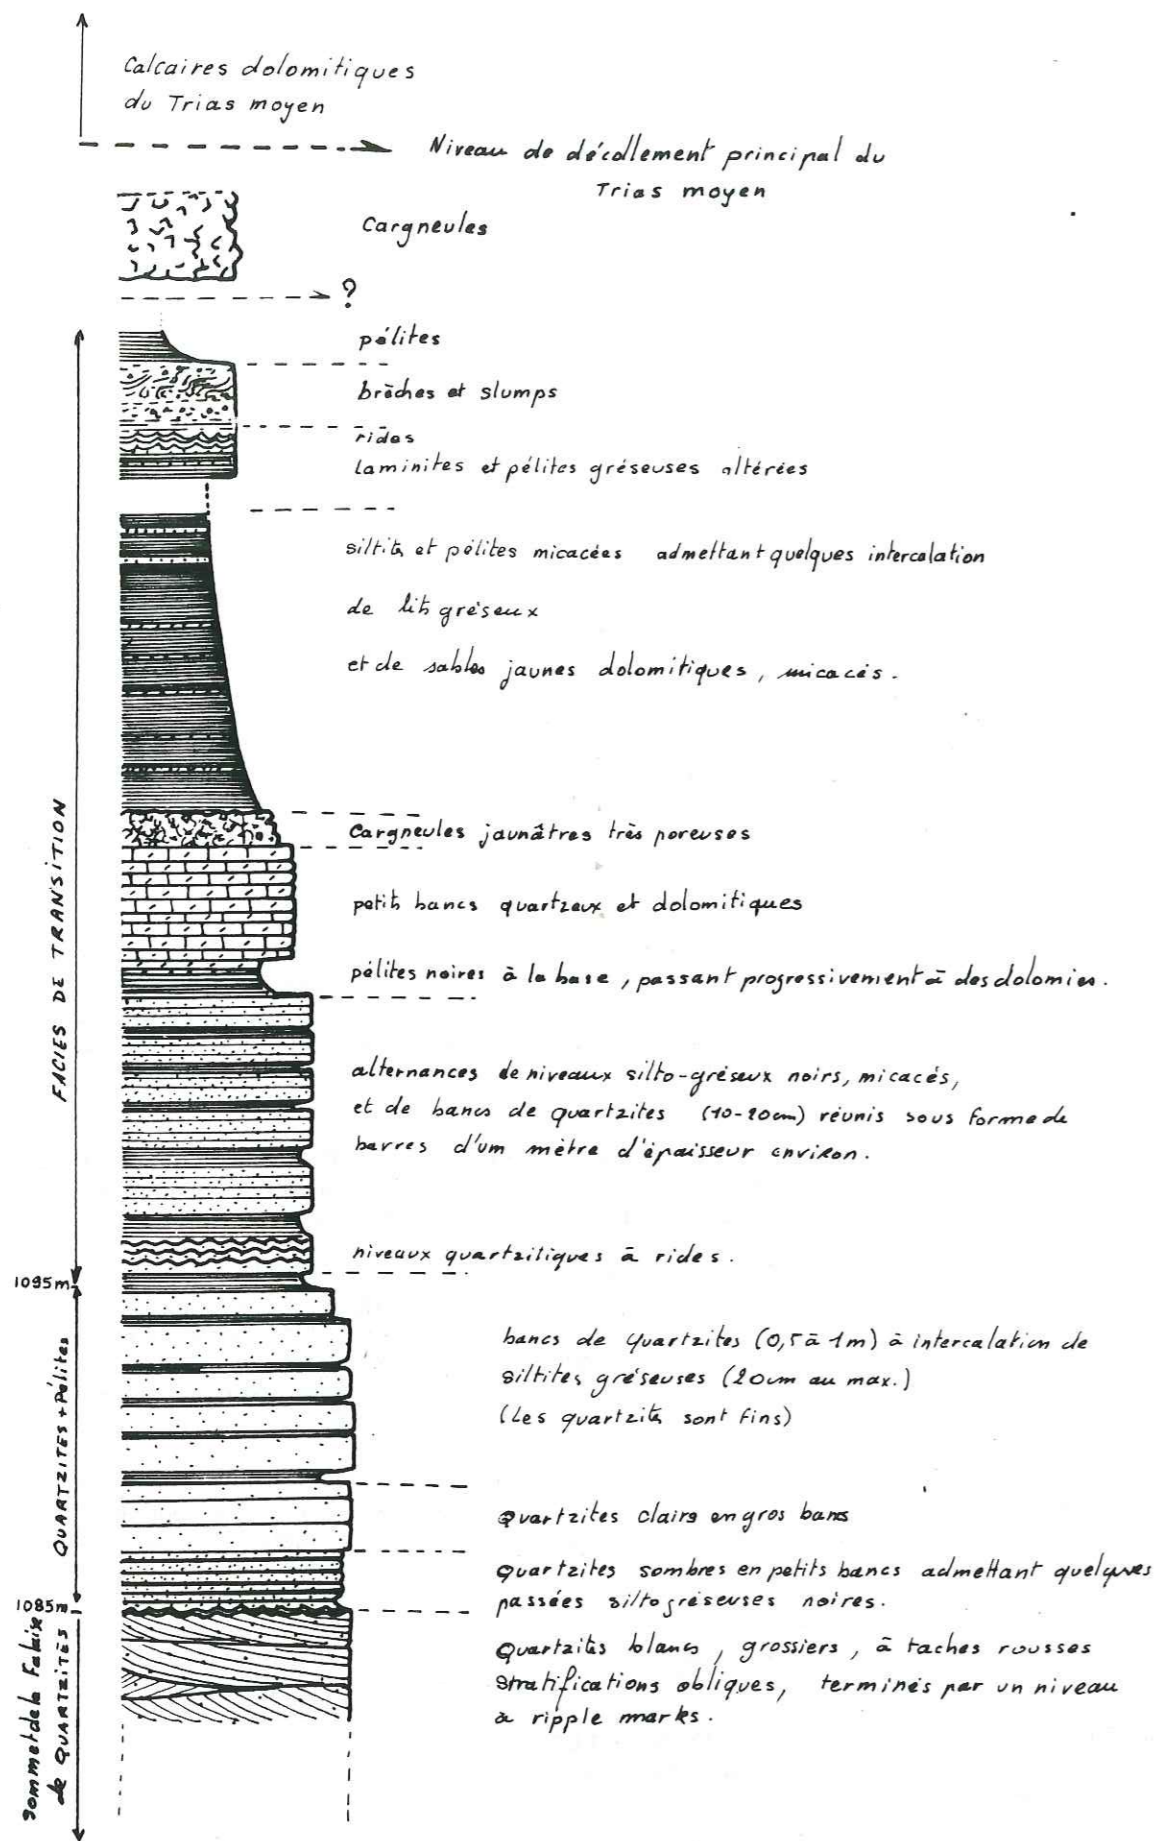 Calcaires dolomitiques
du Trias moyen
Niveau de décollement principal du
Trias moyen
Cargneules
?
pélites
brèches et slumps
rides
laminites et pélites gréseuses altérées
siltits et pélites micacées admettant quelques intercalation
de lits gréseux
et de sables jaunes dolomitiques, micacés.
Cargneules jaunâtres très poreuses
petits bancs quartzeux et dolomitiques
pélites noires à la base, passant progressivement à des dolomies.
FACIES DE TRANSITION
alternances de niveaux silto-gréseux noirs, micacés,
et de bancs de quartzites (10-20cm) réunis sous forme de
barres d'um mètre d'épaisseur environ.
niveaux quartzitiques à rides.
1095m
bancs de quartzites (0,5 à 1m) à intercalation de
siltites gréseuses (20cm au max.)
(Les quartzits sont fins)
QUARTZITES + Pélites
Quartzites clairs en gros bancs
Quartzites sombres en petits bancs admettant quelques
passées siltogréseuses noires.
1085m
Quartzites blancs, grossiers, à taches rousses
stratifications obliques, terminés par un niveau
à ripple marks.
Sommet de la Falaise
de QUARTZITES